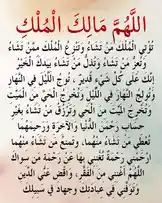 اللَّهُمَّ مَالِكَ الْمُلْكِ
تُؤتِي الْمُلْكَ مَنْ تَشَاءُ وَتَنزِعُ الْمُلْكَ مِمَّنْ تَشَاءُ
وَتُعِزُّ مَنْ تَشَاءُ وَتُذِلُّ مَنْ تَشَاءُ بِيَدِكَ الْخَيْرُ
إِنَّكَ عَلَى كُلِّ شَيْءٍ قَدِيرٌ، تُولِجُ اللَّيْلَ فِي النَّهَارِ
وَتُولِجُ النَّهَارَ فِي اللَّيْلِ وَتُخْرِجُ الْحَيَّ مِنَ الْمَيِّتِ
وَتُخْرِجُ الْمَيِّتَ مِنَ الْحَيِّ وَتَرْزُقُ مَنْ تَشَاءُ بِغَيْرِ
حِسَابٍ رَحْمَنَ الدُّنْيَا وَالْآخِرَةِ وَرَحِيمَهُمَا
تُعْطِي مَنْ تَشَاءُ مِنْهُمَا، وَتَمْنَعُ مَنْ تَشَاءُ مِنْهُمَا
ارْحَمْنِي رَحْمَةً تُغْنِينِي بِهَا عَنْ رَحْمَةِ مَنْ سِوَاكَ
اللَّهُمَّ أَغْنِنِي مِنَ الْفَقْرِ، وَاقْضِ عَنِّي الدَّيْنَ
وَتَوَفَّنِي فِي عِبَادَتِكَ وَجِهَادٍ فِي سَبِيلِكَ